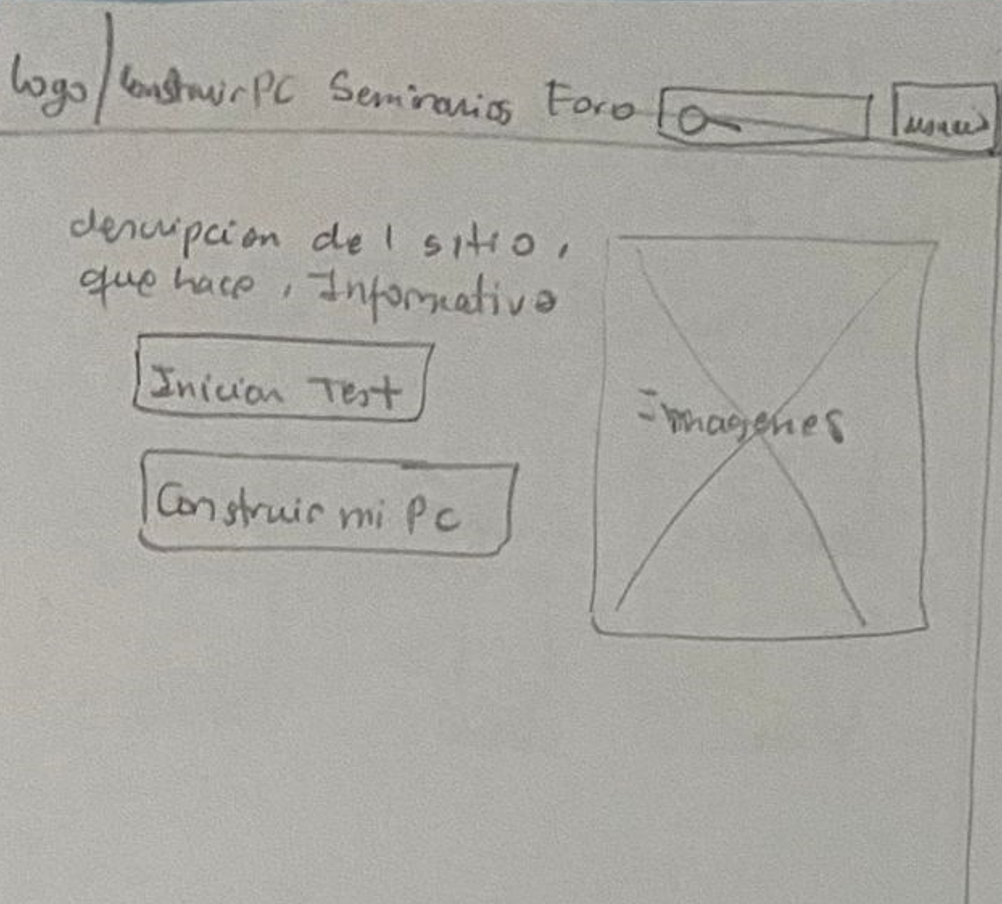 Logo Construir PC Seminarios Foro
descripcion del sitio,
que hace, Informativo
Iniciar Test
Construir mi PC
Imagenes